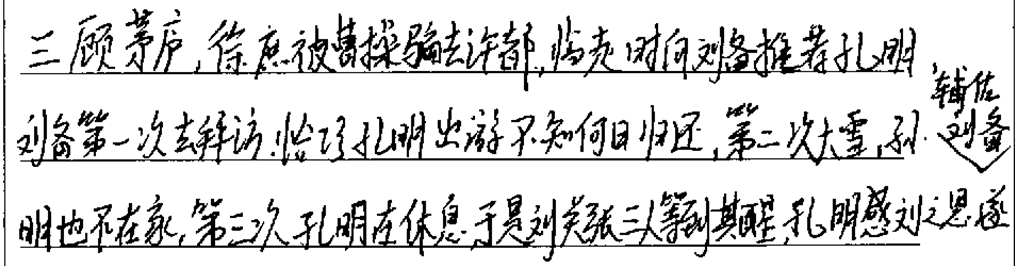 三顾茅庐,徐庶被曹操骗去许都,临走时向刘备推荐孔明,
刘备第一次去拜访,恰巧孔明出游不知何日归还,第二次大雪,孔
明也不在家,第三次孔明在休息,于是刘关张三人等到其醒,孔明感刘之恩遂
辅佐
刘备